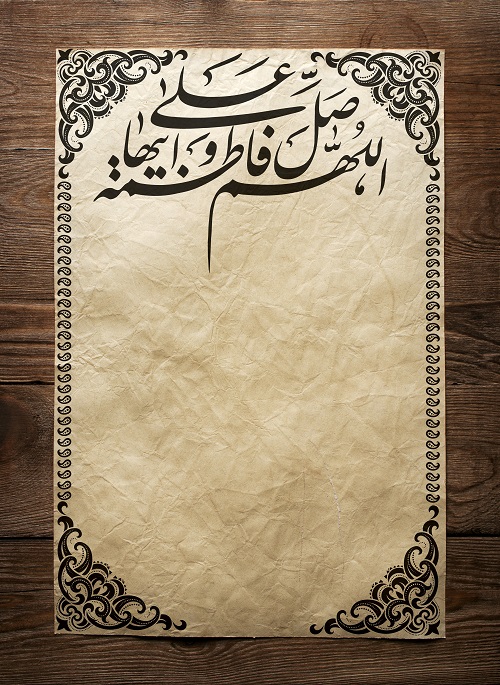 اللهُمَّ صَلِّ عَلی فاطمة و ابیها